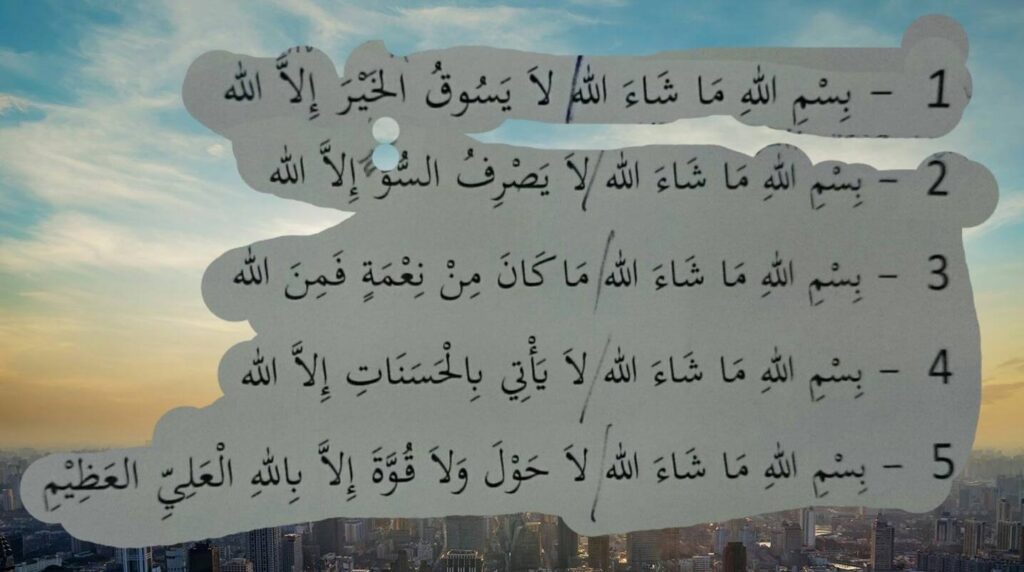 1 – بِسْمِ اللهِ مَا شَاءَ الله/ لاَ يَسُوقُ الخَيْرَ إِلاَّ الله
2 – بِسْمِ اللهِ مَا شَاءَ الله/ لاَ يَصْرِفُ السُّوَ إِلاَّ الله
3 – بِسْمِ اللهِ مَا شَاءَ الله/ مَا كَانَ مِنْ نِعْمَةٍ فَمِنَ الله
4 – بِسْمِ اللهِ مَا شَاءَ الله/ لاَ يَأْتِي بِالْحَسَنَاتِ إِلاَّ الله
5 – بِسْمِ اللهِ مَا شَاءَ الله/ لاَ حَوْلَ وَلاَ قُوَّةَ إِلاَّ بِاللهِ الْعَلِيِّ العَظِيْمِ